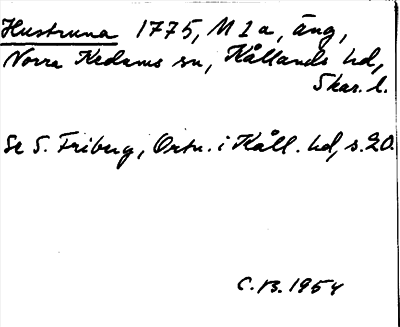 Hustruna 1775, M 1 a, äng,
Norra Kedums sn, Kållands hd,
Skar. l.
Se S. Friberg, Ortn. i Kåll. hd, s. 20.
C. B. 1954